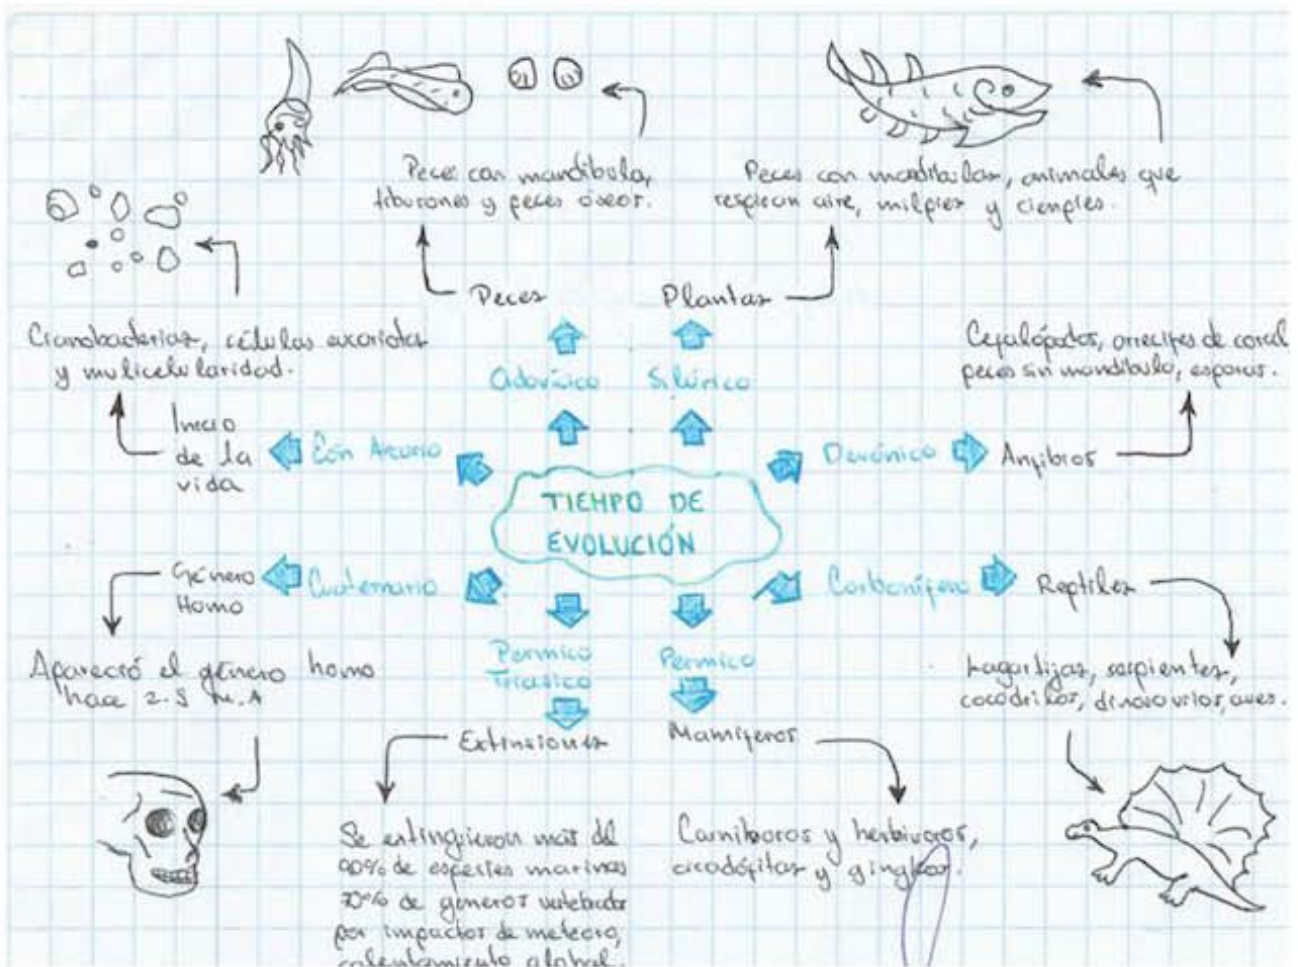 Peces con mandíbula,
tiburones y peces óseos.
Peces con mandíbulas, animales que
respiran aire, milpies y ciempies.
Peces
Plantas
Cianobacterias, células eucariotas
y multicelularidad.
Cefalópodos, arrecifes de coral
peces sin mandíbula, esporas.
Odovícico
Silúrico
Inicio
de la
vida
Eón Arcano
Devónico
Anfibios
TIEMPO DE
EVOLUCIÓN
Género
Homo
Cuaternario
Carbonífero
Reptiles
Apareció el género homo
hace 2.5 M.A
Permico
Triasico
Permico
Lagartijas, serpientes,
cocodrilos, dinosaurios, aves.
Extinsiones
Mamíferos
Se extinguieron mas del
90% de especies marinas
70% de generos vertebrados
por impactos de meteoro,
calentamiento global.
Carniboros y herbivoros,
cicadófitas y gingkos.